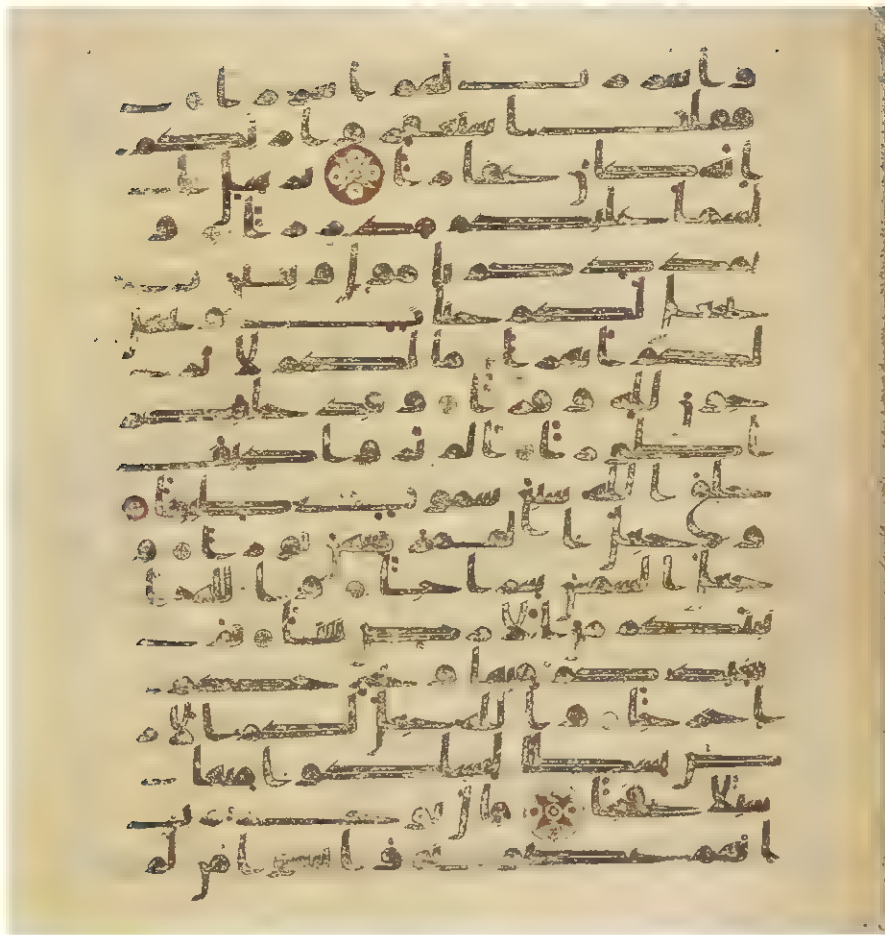 واسررت لهم اسرارا
فقلت استغفروا ربكم
انه كان غفارا يرسل ا
لسما عليكم مدرارا و
يمددكم بامول وبنين و
يجعل لكم جنت ويجعل
لكم انهرا ما لكم لا تر
جون لله وقارا وقد خلقكم
اطوارا الم تروا كيف
خلق الله سبع سموت طباقا
وجعل القمر فيهن نورا و
جعل الشمس سراجا والله ا
نبتكم من الارض نباتا ثم
يعيدكم فيها ويخرجكم
اخراجا والله جعل لكم الا
رض بساطا لتسلكوا منها
سبلا فجاجا قال نوح رب
انهم عصوني واتبعوا من لم